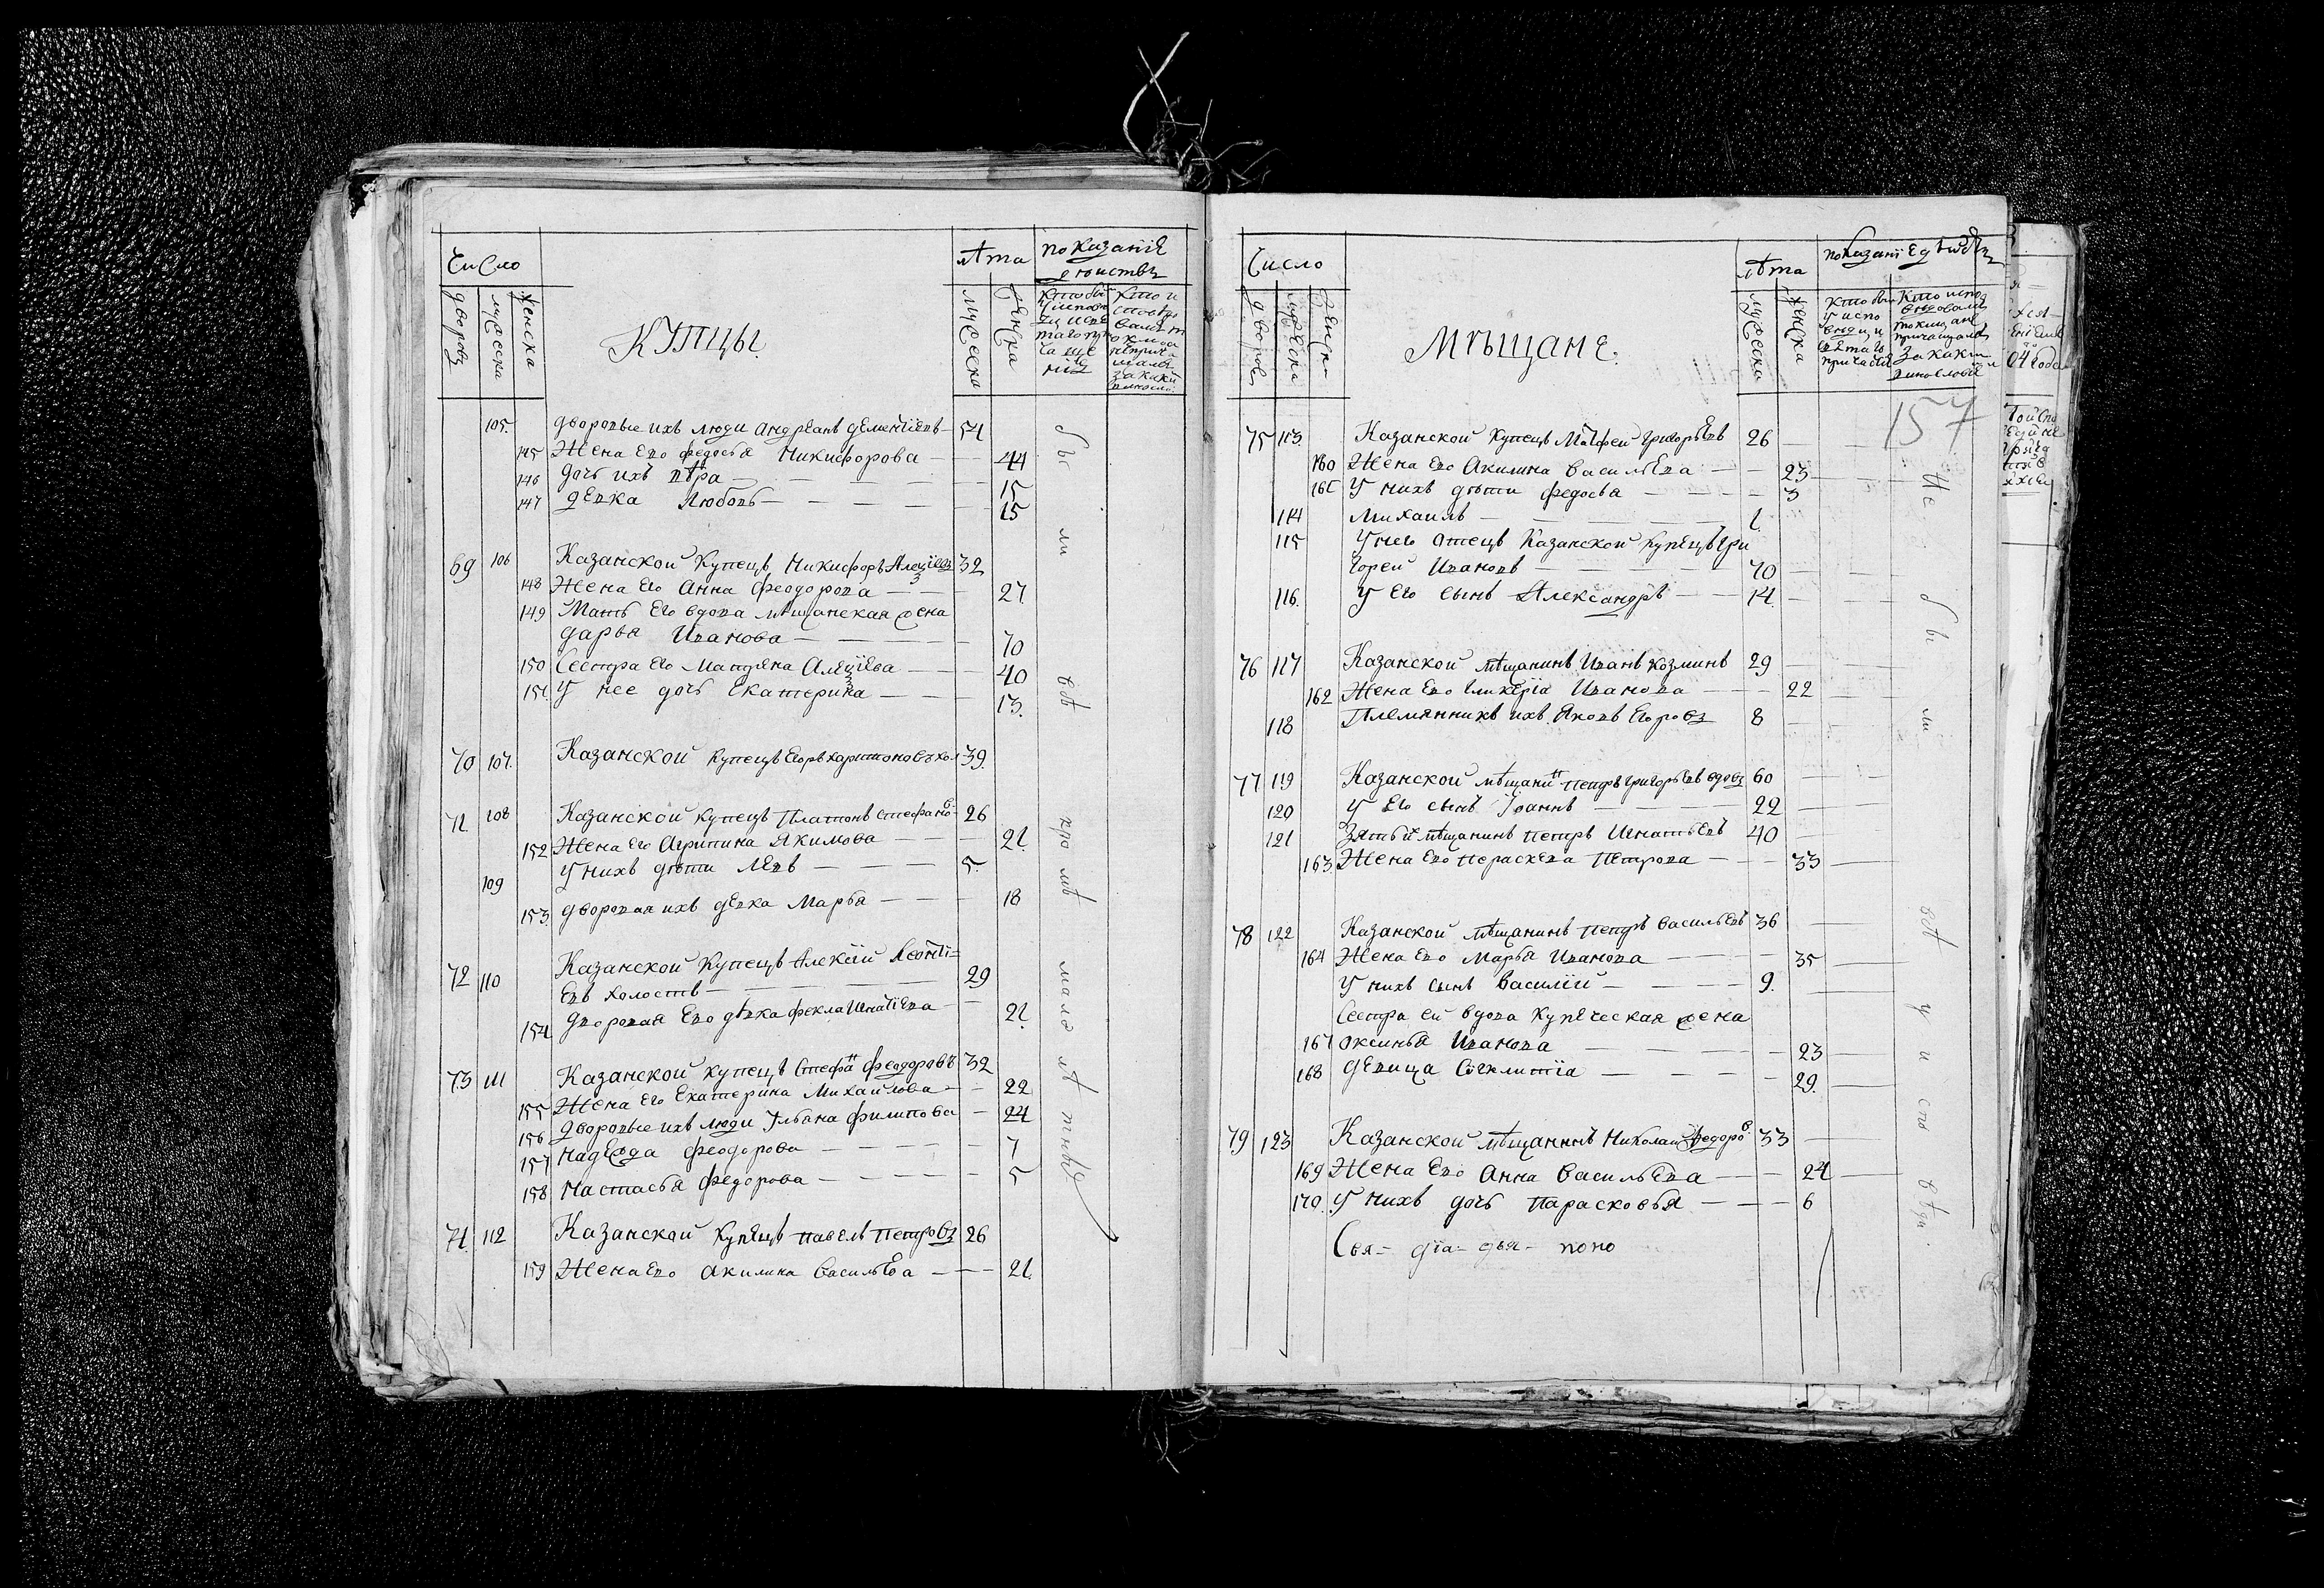 Число
лѣта
показанїе
дѣиствъ
дворовъ
мужеска
женска
КУПЦЫ.
мужеска
женска
105. дворовые ихъ люди Андреанъ Дементїевъ 54
145 Жена Ево Федосья Никифорова 44
146 дочь ихъ 15
147 девка Любовь 15
69 106 Казанской Купецъ Никифоръ Алеѯїевъ 32
148 Жена Его Анна Феодорова 27
149 Мать Его вдова мѣщанская жена
дарья Иванова 70
150 Сестра Его Матрена Алеѯїева 40
151 У нее дочь Екатерина 13.
70 107. Казанской Купецъ Егоръ Харитоновъ хол 39
71 108 Казанской Купецъ Платонъ Стефановъ 26
152 Жена Его Агрипина Якимова 21
109 У нихъ дѣти Левъ 5.
153 дворовая ихъ девка Марѳа 18
72 110 Казанской Купецъ Алексїй Леонтї=
евъ холостъ 29
154 дворовая Ево дѣвка Фекла Игнатїева 21
73 111 Казанской Купецъ Стефанъ Феодоровъ 32
155 Жена Его Екатерина Михайлова 22
156 дворовые ихъ люди Ульяна Филипова 24
157 Надежда Феодорова 7
158 Настасья Федорова 5
74 112 Казанской Купецъ Павелъ Петровъ 26
159 Жена Ево Акилина Васильева 21
бы ли всѣ кро мѣ мало лѣ тныхъ
Число
лѣта
показанїе дѣиствъ
дворовъ
мужеска
женска
Мѣщане.
мужеска
женска
157
75 113. Казанской Купецъ Матфей Григорьевъ 26
160 Жена Ево Акилина Васильева 23
161 У нихъ дѣти Федосья 3
114 Михаилъ 1
115 У него отецъ Казанской Купецъ Гри
горей Ивановъ 70
116. У Его сынъ Александръ 14.
76 117 Казанской мѣщанинъ Иванъ Козминъ 29
162 Жена Ево Гликерїа Иванова 22
118 Племянникъ ихъ Яковъ Егоровъ 8
77 119 Казанской мѣщанинъ Петръ Григорьевъ вдовъ 60
120 У Его сынъ Іоаннъ 22
121 Зять ей мѣщанинъ Петръ Игнатьевъ 40
163 Жена Ево Параскева Петрова 33
78 122 Казанской мѣщанинъ Петръ Васильевъ 36
164 Жена Ево Марѳа Иванова 35
У нихъ сынъ Василїй 9.
Сестра ей вдова Купеческая жена
167 Оксинья Иванова 23
168 девица Сигклитїа 29.
79 123 Казанской мѣщанинъ Николай Федоровъ 33
169 Жена Ево Анна Васильева 24
170. У нихъ дочь Парасковья 6
Свя= дїа= дья= поно
Не бы ли всѣ у испо вѣди